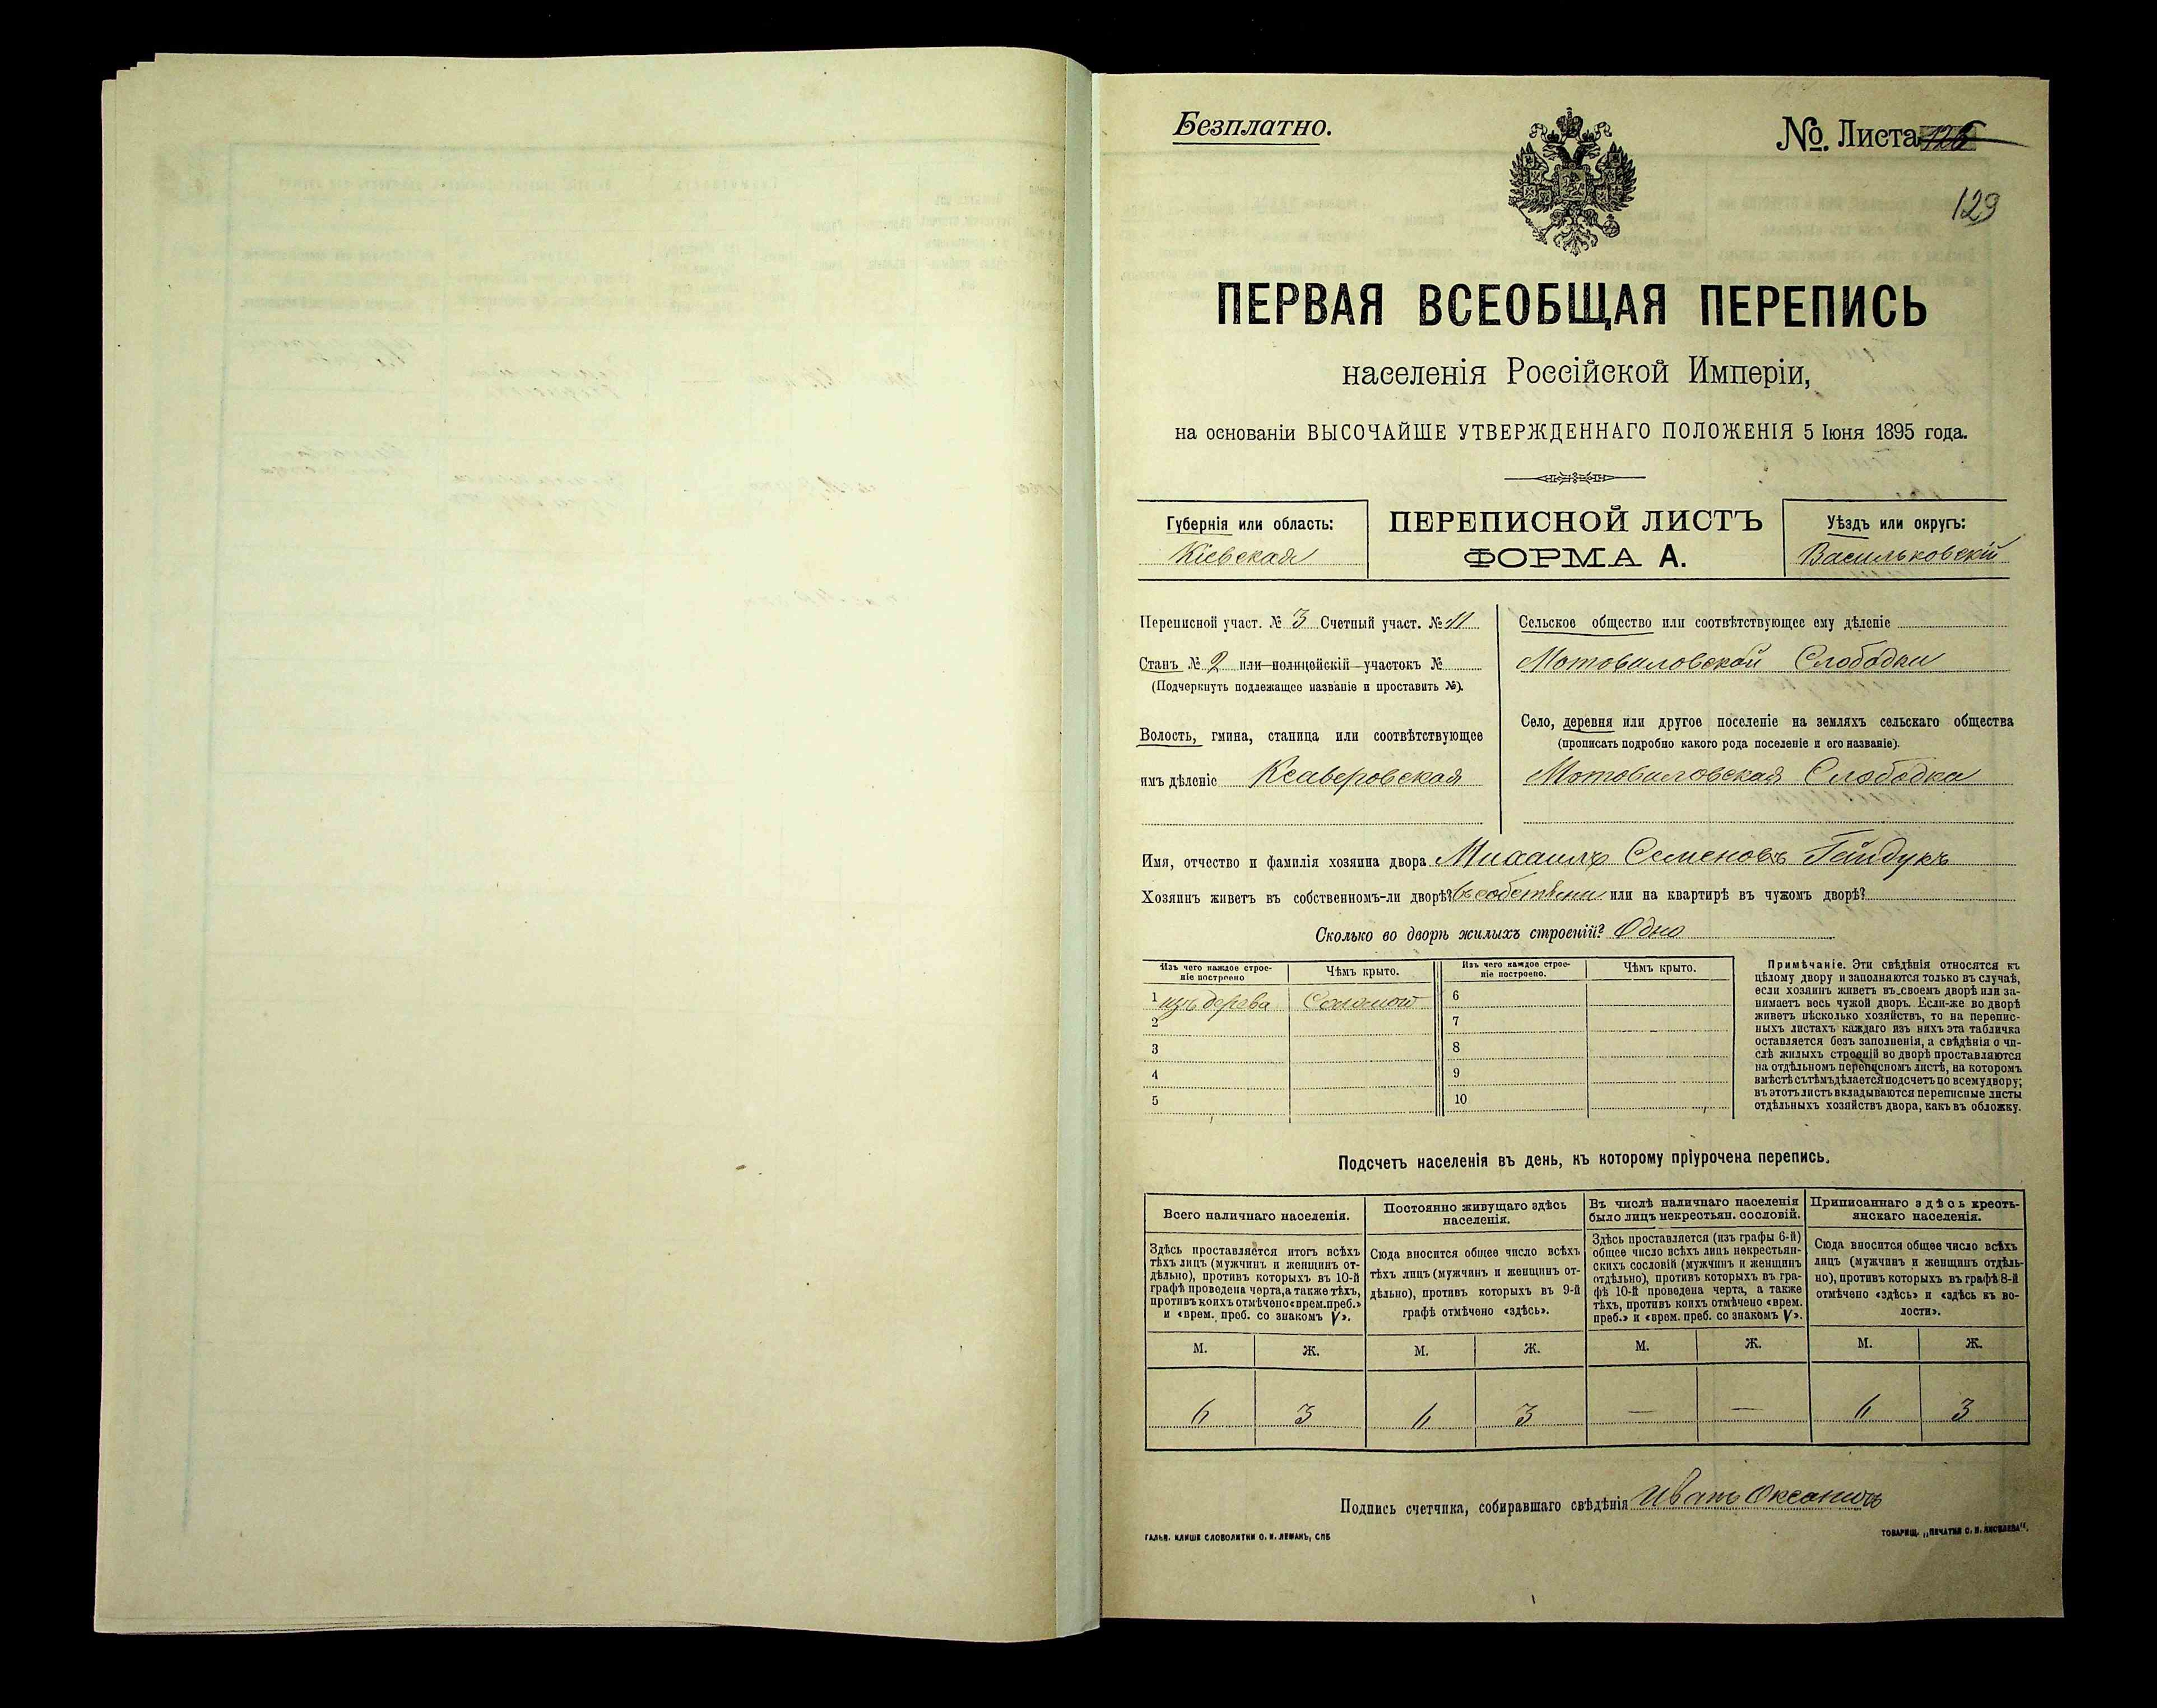 Безплатно.
№. Листа 126
129
ПЕРВАЯ ВСЕОБЩАЯ ПЕРЕПИСЬ
населенія Россійской Имперіи,
на основаніи ВЫСОЧАЙШЕ УТВЕРЖДЕННАГО ПОЛОЖЕНІЯ 5 Іюня 1895 года.
Губернія или область:
Кіевская
ПЕРЕПИСНОЙ ЛИСТЪ
ФОРМА А.
Уѣздъ или округъ:
Васильковскій
Переписной участ. № 3 Счетный участ. № 11
Станъ № 2 или полицейскій участокъ №
(Подчеркнуть подлежащее названіе и проставить №).
Волость, гмина, станица или соотвѣтствующее
имъ дѣленіе Ксаверовская
Сельское общество или соотвѣтствующее ему дѣленіе
Мотовиловской Слободки
Село, деревня или другое поселеніе на земляхъ сельскаго общества
(прописать подробно какого рода поселеніе и его названіе).
Мотовиловская Слободка
Имя, отчество и фамилія хозяина двора Михаилъ Семеновъ Гайдукъ
Хозяинъ живетъ въ собственномъ-ли дворѣ? въ или на квартирѣ въ чужомъ дворѣ?
Сколько во дворѣ жилыхъ строеній? Одно
Изъ чего каждое строе-
ніе построено
Чѣмъ крыто.
Изъ чего каждое строе-
ніе построено.
Чѣмъ крыто.
1 изъ дерева Соломою 6
2 7
3 8
4 9
5 10
Примѣчаніе. Эти свѣдѣнія относятся къ
цѣлому двору и заполняются только въ случаѣ,
если хозяинъ живетъ въ своемъ дворѣ или за-
нимаетъ весь чужой дворъ. Если-же во дворѣ
живетъ нѣсколько хозяйствъ, то на перепис-
ныхъ листахъ каждаго изъ нихъ эта табличка
оставляется безъ заполненія, а свѣдѣнія о чи-
слѣ жилыхъ строеній во дворѣ проставляются
на отдѣльномъ переписномъ листѣ, на которомъ
вмѣстѣ съ тѣмъ дѣлается подсчетъ по всему двору;
въ этотъ листъ вкладываются переписные листы
отдѣльныхъ хозяйствъ двора, какъ въ обложку.
Подсчетъ населенія въ день, къ которому пріурочена перепись.
Всего наличнаго населенія.
Здѣсь проставляется итогъ всѣхъ
тѣхъ лицъ (мужчинъ и женщинъ от-
дѣльно), противъ которыхъ въ 10-й
графѣ проведена черта, а также тѣхъ,
противъ коихъ отмѣчено «врем. преб.»
и «врем. преб. со знакомъ V».
Постоянно живущаго здѣсь
населенія.
Сюда вносится общее число всѣхъ
тѣхъ лицъ (мужчинъ и женщинъ от-
дѣльно), противъ которыхъ въ 9-й
графѣ отмѣчено «здѣсь».
Въ числѣ наличнаго населенія
было лицъ некрестьян. сословій.
Здѣсь проставляется (изъ графы 6-й)
общее число всѣхъ лицъ некрестьян-
скихъ сословій (мужчинъ и женщинъ
отдѣльно), противъ которыхъ въ гра-
фѣ 10-й проведена черта, а также
тѣхъ, противъ коихъ отмѣчено «врем.
преб.» и «врем. преб. со знакомъ V».
Приписаннаго здѣсь кресть-
янскаго населенія.
Сюда вносится общее число всѣхъ
лицъ (мужчинъ и женщинъ отдѣль-
но), противъ которыхъ въ графѣ 8-й
отмѣчено «здѣсь» и «здѣсь къ во-
лости».
М. Ж. М. Ж. М. Ж. М. Ж.
6 3 6 3 — — 6 3
Подпись счетчика, собиравшаго свѣдѣнія Иванъ
ГАЛЬВ. КЛИШЕ СЛОВОЛИТНИ О. И. ЛЕМАНЪ, СПБ
ТОВАРИЩ. „ПЕЧАТНЯ С. П. ЯКОВЛЕВА“.